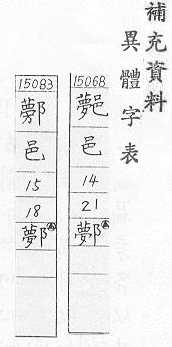 補充資料
異體字表
15068
邑
14
21
鄸
15083
邑
15
18
鄸